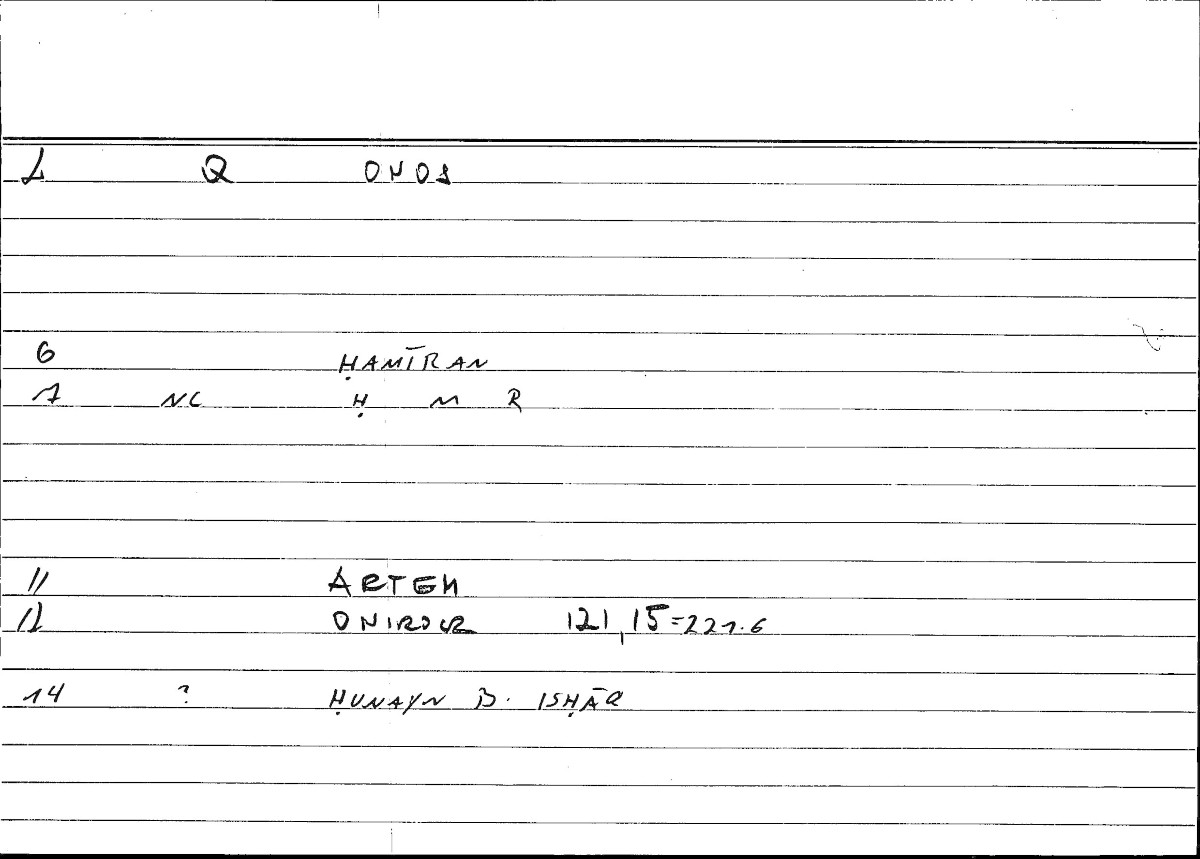 1 Q ONOS
6 ḤAMĪRAN
7 NC Ḥ M R
11 ARTEM
12 ONIROCR 121,15=221.6
14 ? ḤUNAYN B. ISḤĀQ